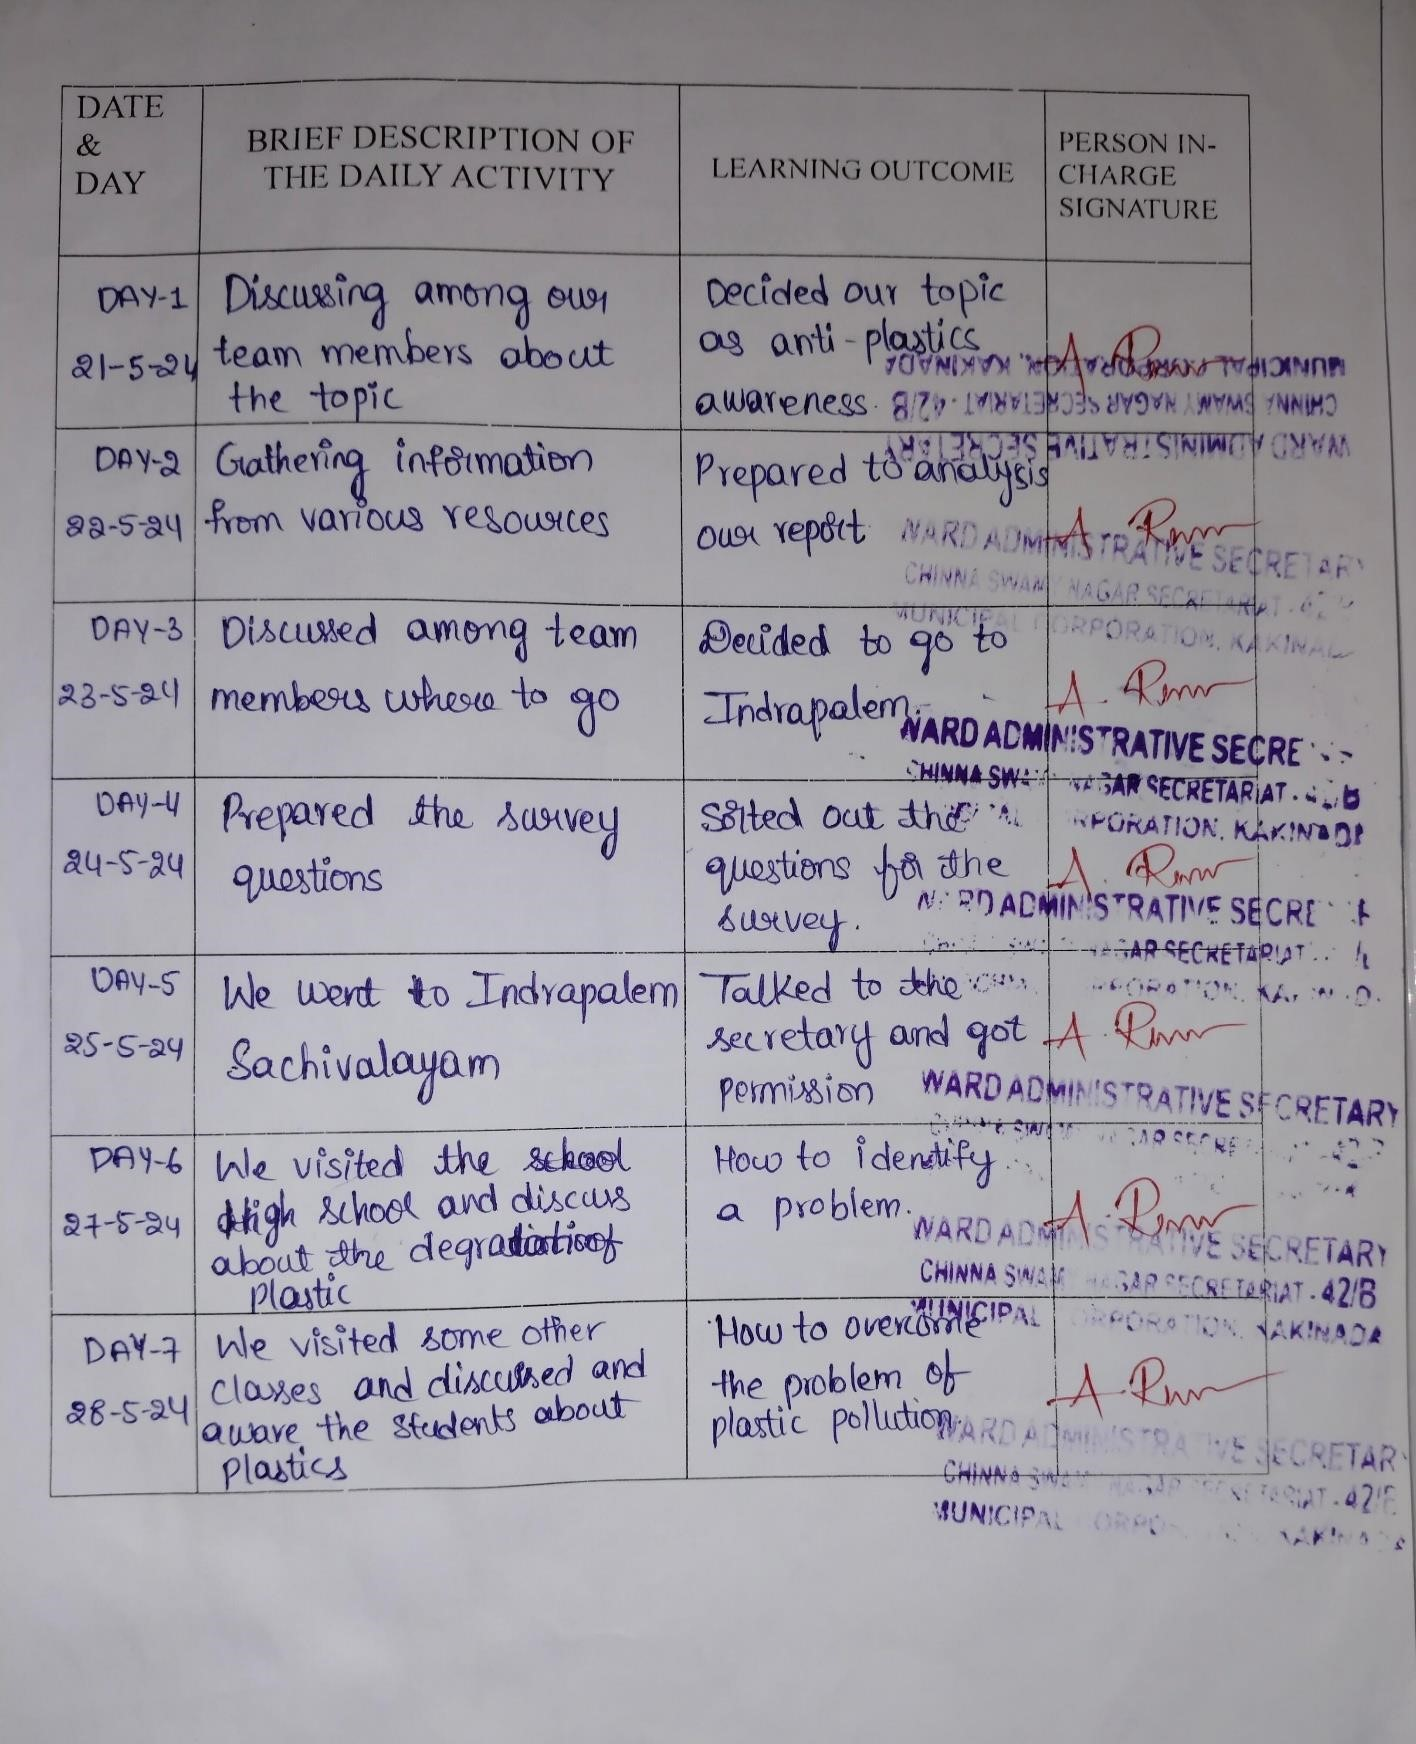 DATE
&
DAY
BRIEF DESCRIPTION OF
THE DAILY ACTIVITY
LEARNING OUTCOME
PERSON IN-
CHARGE
SIGNATURE
DAY-1
21-5-24
Discussing among our
team members about
the topic
Decided our topic
as anti-plastics
awareness.
WARD ADMINISTRATIVE SECRETARY
CHINNA SWAMY NAGAR SECRETARIAT - 42/B
MUNICIPAL CORPORATION, KAKINADA
DAY-2
22-5-24
Gathering information
from various resources
Prepared to analysis
our report
WARD ADMINISTRATIVE SECRETARY
CHINNA SWAMY NAGAR SECRETARIAT - 42/B
MUNICIPAL CORPORATION, KAKINAD
DAY-3
23-5-24
Discussed among team
members where to go
Decided to go to
Indrapalem.
WARD ADMINISTRATIVE SECRE
CHINNA SWA NAGAR SECRETARIAT - 42/B
CORPORATION, KAKINADA
DAY-4
24-5-24
Prepared the survey
questions
Sorted out the
questions for the
survey.
WARD ADMINISTRATIVE SECRE
NAGAR SECRETARIAT
CORPORATION,
DAY-5
25-5-24
We went to Indrapalem
Sachivalayam
Talked to the
secretary and got
permission
WARD ADMINISTRATIVE SECRETARY
DAY-6
27-5-24
We visited the school
High school and discuss
about the degradation of
plastic
How to identify
a problem.
WARD ADMINISTRATIVE SECRETARY
CHINNA SWAMY NAGAR SECRETARIAT - 42/B
MUNICIPAL CORPORATION, KAKINADA
DAY-7
28-5-24
We visited some other
classes and discussed and
aware the students about
plastics
How to overcome
the problem of
plastic pollution.
WARD ADMINISTRATIVE SECRETAR
CHINNA SWAMY NAGAR SECRETARIAT - 42/B
MUNICIPAL CORPO KAKINADA